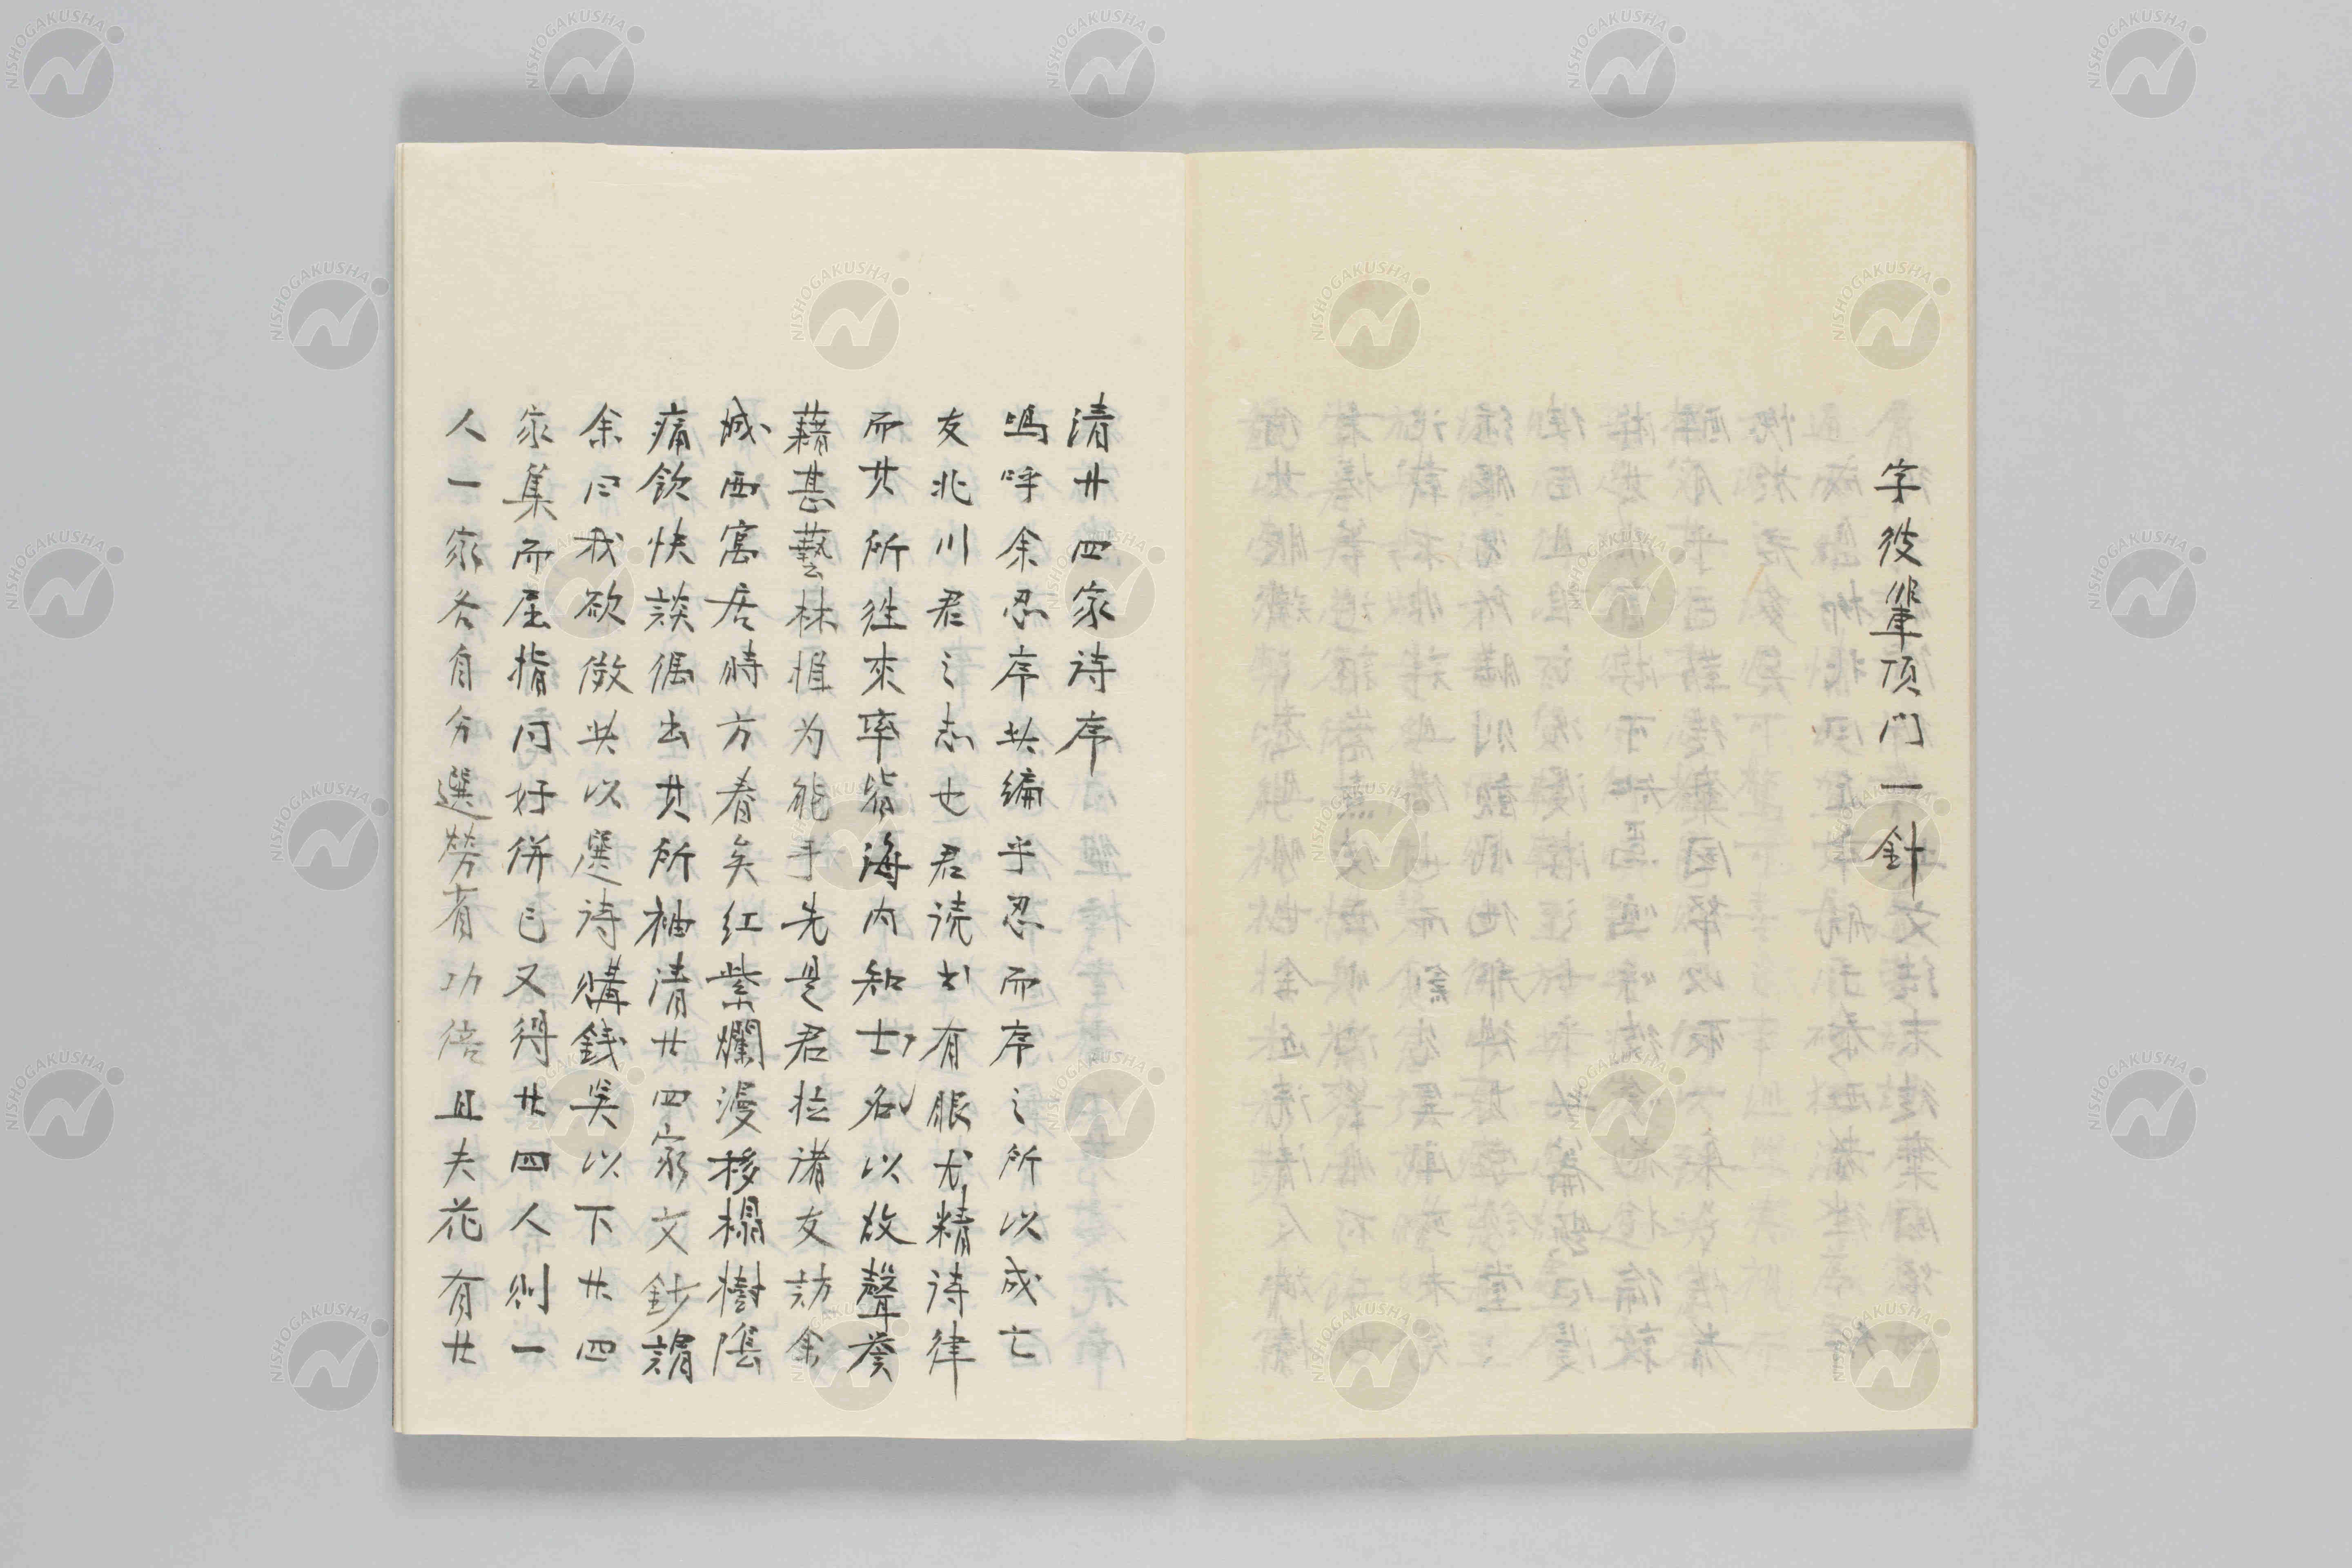 字彼輩頂门一針
清廿四家詩序
嗚呼余忍序此編乎忍而序之所以成亡
友兆川君之志也君読书有眼尤精詩律
而其所往來率皆海内知士名以故聲誉
藉甚藝林推为能手先是君拉諸友訪余
城西寓居時方春矣红紫爛漫移榻樹陰
痛飲快談偶出其所袖清廿四家文鈔謂
余曰我欲倣此以選詩購錢吴以下廿四
家集而屈指同好併已又得廿四人則一
人一家各自分選勞省功倍且夫花有廿
NISHOGAKUSHA